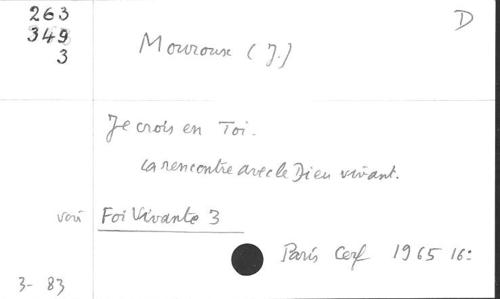 263
349
3
D
Mouroux (J.)
Je crois en Toi.
La rencontre avec le Dieu vivant.
voir Foi Vivante 3
Paris Cerf 1965 16:
3- 83